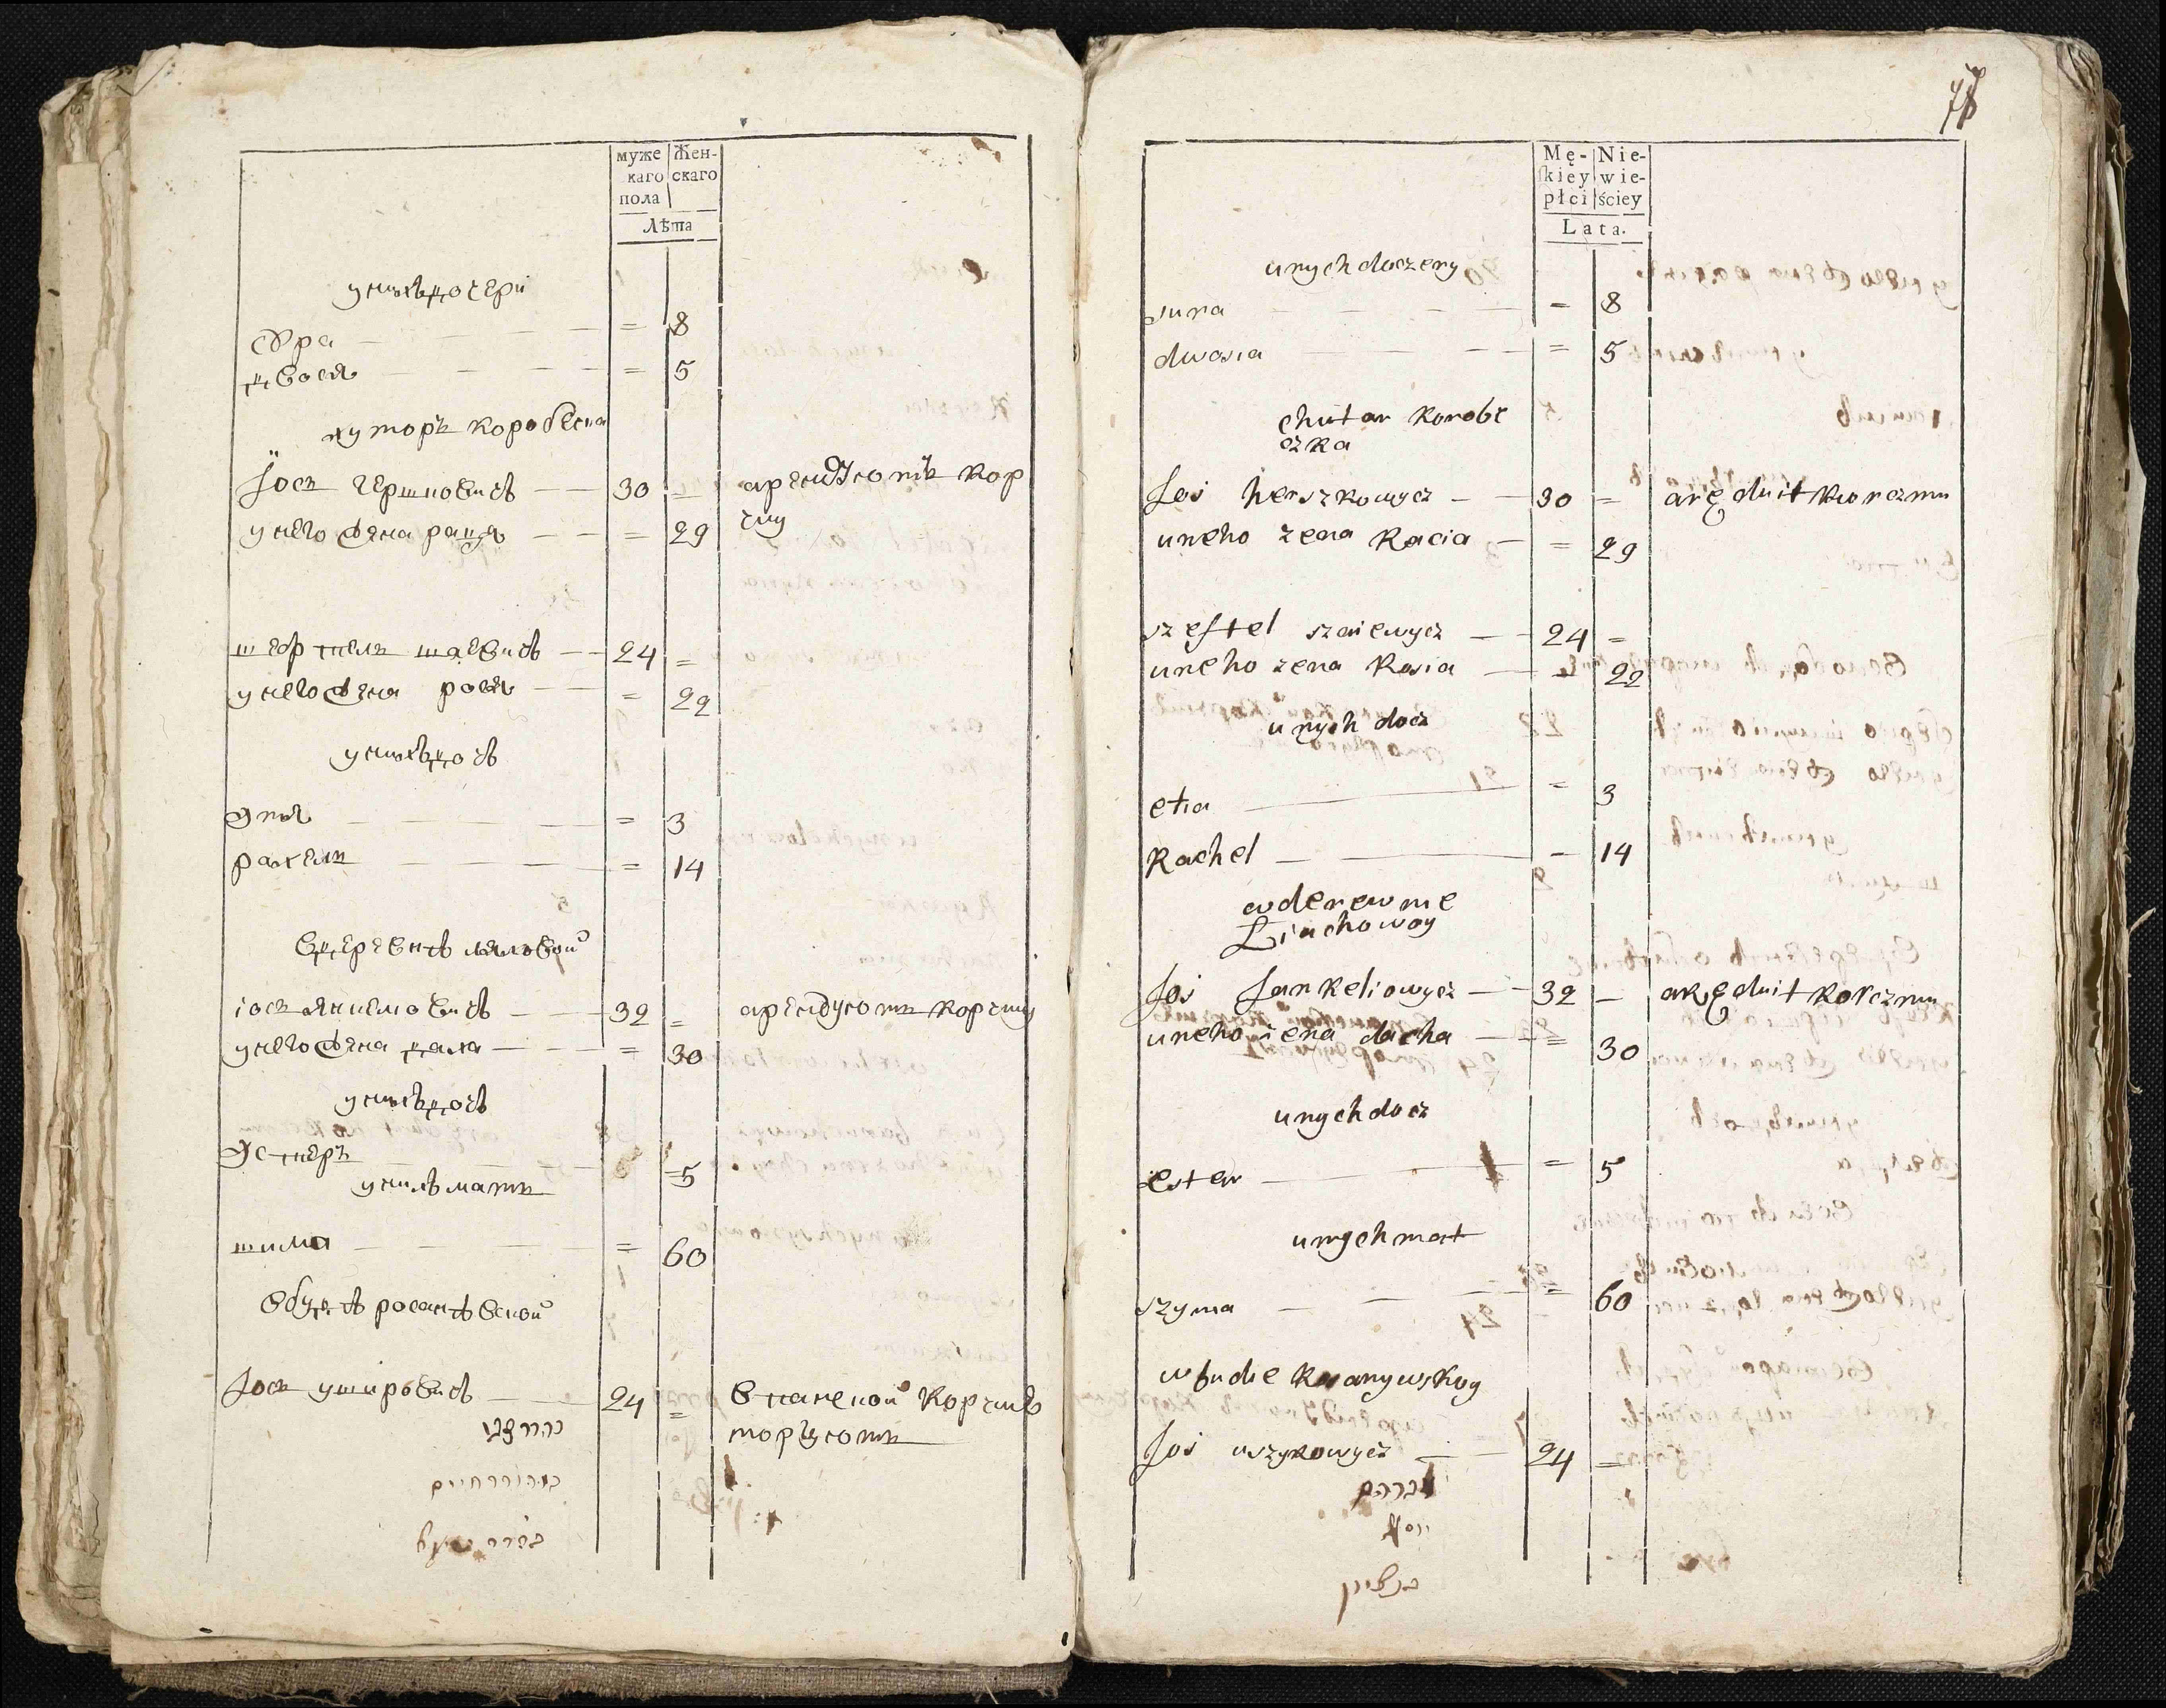 муже
каго
пола
Жен-
скаго
Лѣта
унихъ дочери
сора = 8
двося = 5
хуторъ коробечка
Іось гершковичъ 30 = арендуютъ кор
чму
унего жена рация = 29
шефтель шаевичъ 24 =
унего жена рося = 22
унихъ дочъ
этя = 3
рахель = 14
вдеревнѣ ляховой
іось янкелювичъ 32 = арендуютъ корчму
унего жена даха = 30
унихъ дочъ
эстеръ 5
унихъ мать
шима = 60
вбудѣ росанѣвской
Іось ушировичъ 24 = впанской корчмѣ
торгуютъ
78
Mę-
ſkiey
płci
Nie-
wie-
ściey
Lata.
unych doczery
sura = 8
dwosia = 5
chutar Korobe
czka
Jos herszkowycz 30 = aręduit korczmu
uneho zena Racia = 29
szeftel szaiewycz 24 =
uneho zena Rosia = 22
unych docz
etia = 3
Rachel = 14
wderewnie
Liachowoy
Jos Jankeliowycz 32 = aręduit korczmu
uneho zena dacha = 30
unych docz
ester = 5
unych mat
szyma = 60
wbudie Rosanywskoy
Jos uszyrowycz 24 =
אברהם
יוסף
בנציון